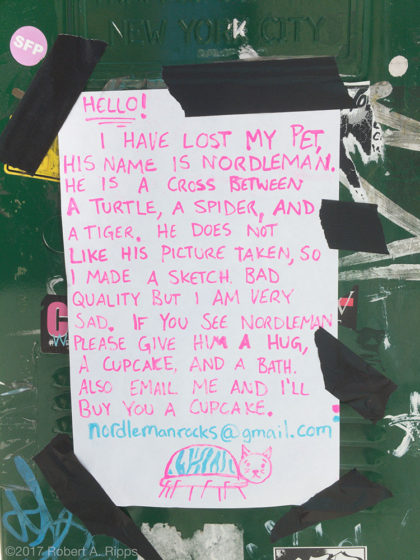 NEW YORK CITY
SFP
HELLO!
I HAVE LOST MY PET,
HIS NAME IS NORDLEMAN.
HE IS A CROSS BETWEEN
A TURTLE, A SPIDER, AND
A TIGER. HE DOES NOT
LIKE HIS PICTURE TAKEN, SO
I MADE A SKETCH. BAD
QUALITY BUT I AM VERY
SAD. IF YOU SEE NORDLEMAN
PLEASE GIVE HIM A HUG,
A CUPCAKE, AND A BATH.
ALSO EMAIL ME AND I'LL
BUY YOU A CUPCAKE.
nordlemanrocks@gmail.com
©2017 Robert A. Ripps